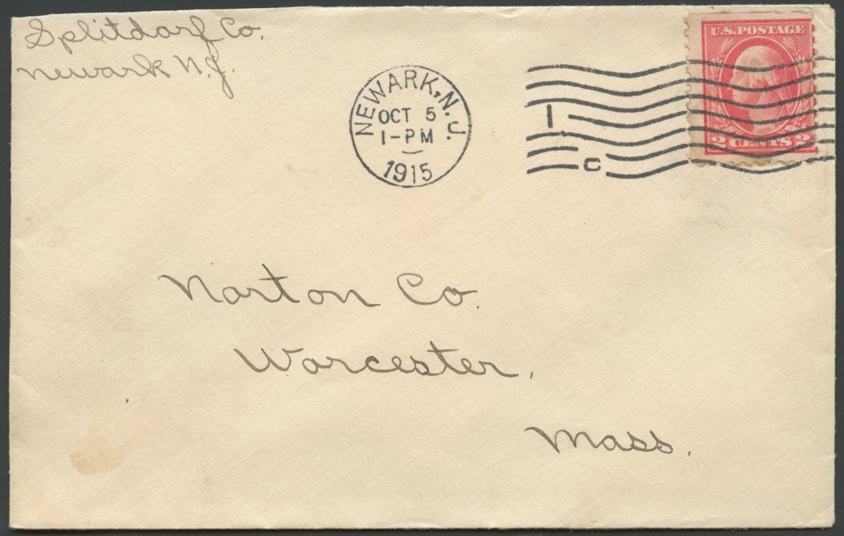 Splitdorf Co.
Newark N.J.
NEWARK, N.J.
OCT 5
1-PM
1915
1
C
U.S. POSTAGE
2 CENTS 2
Norton Co.
Worcester,
Mass.